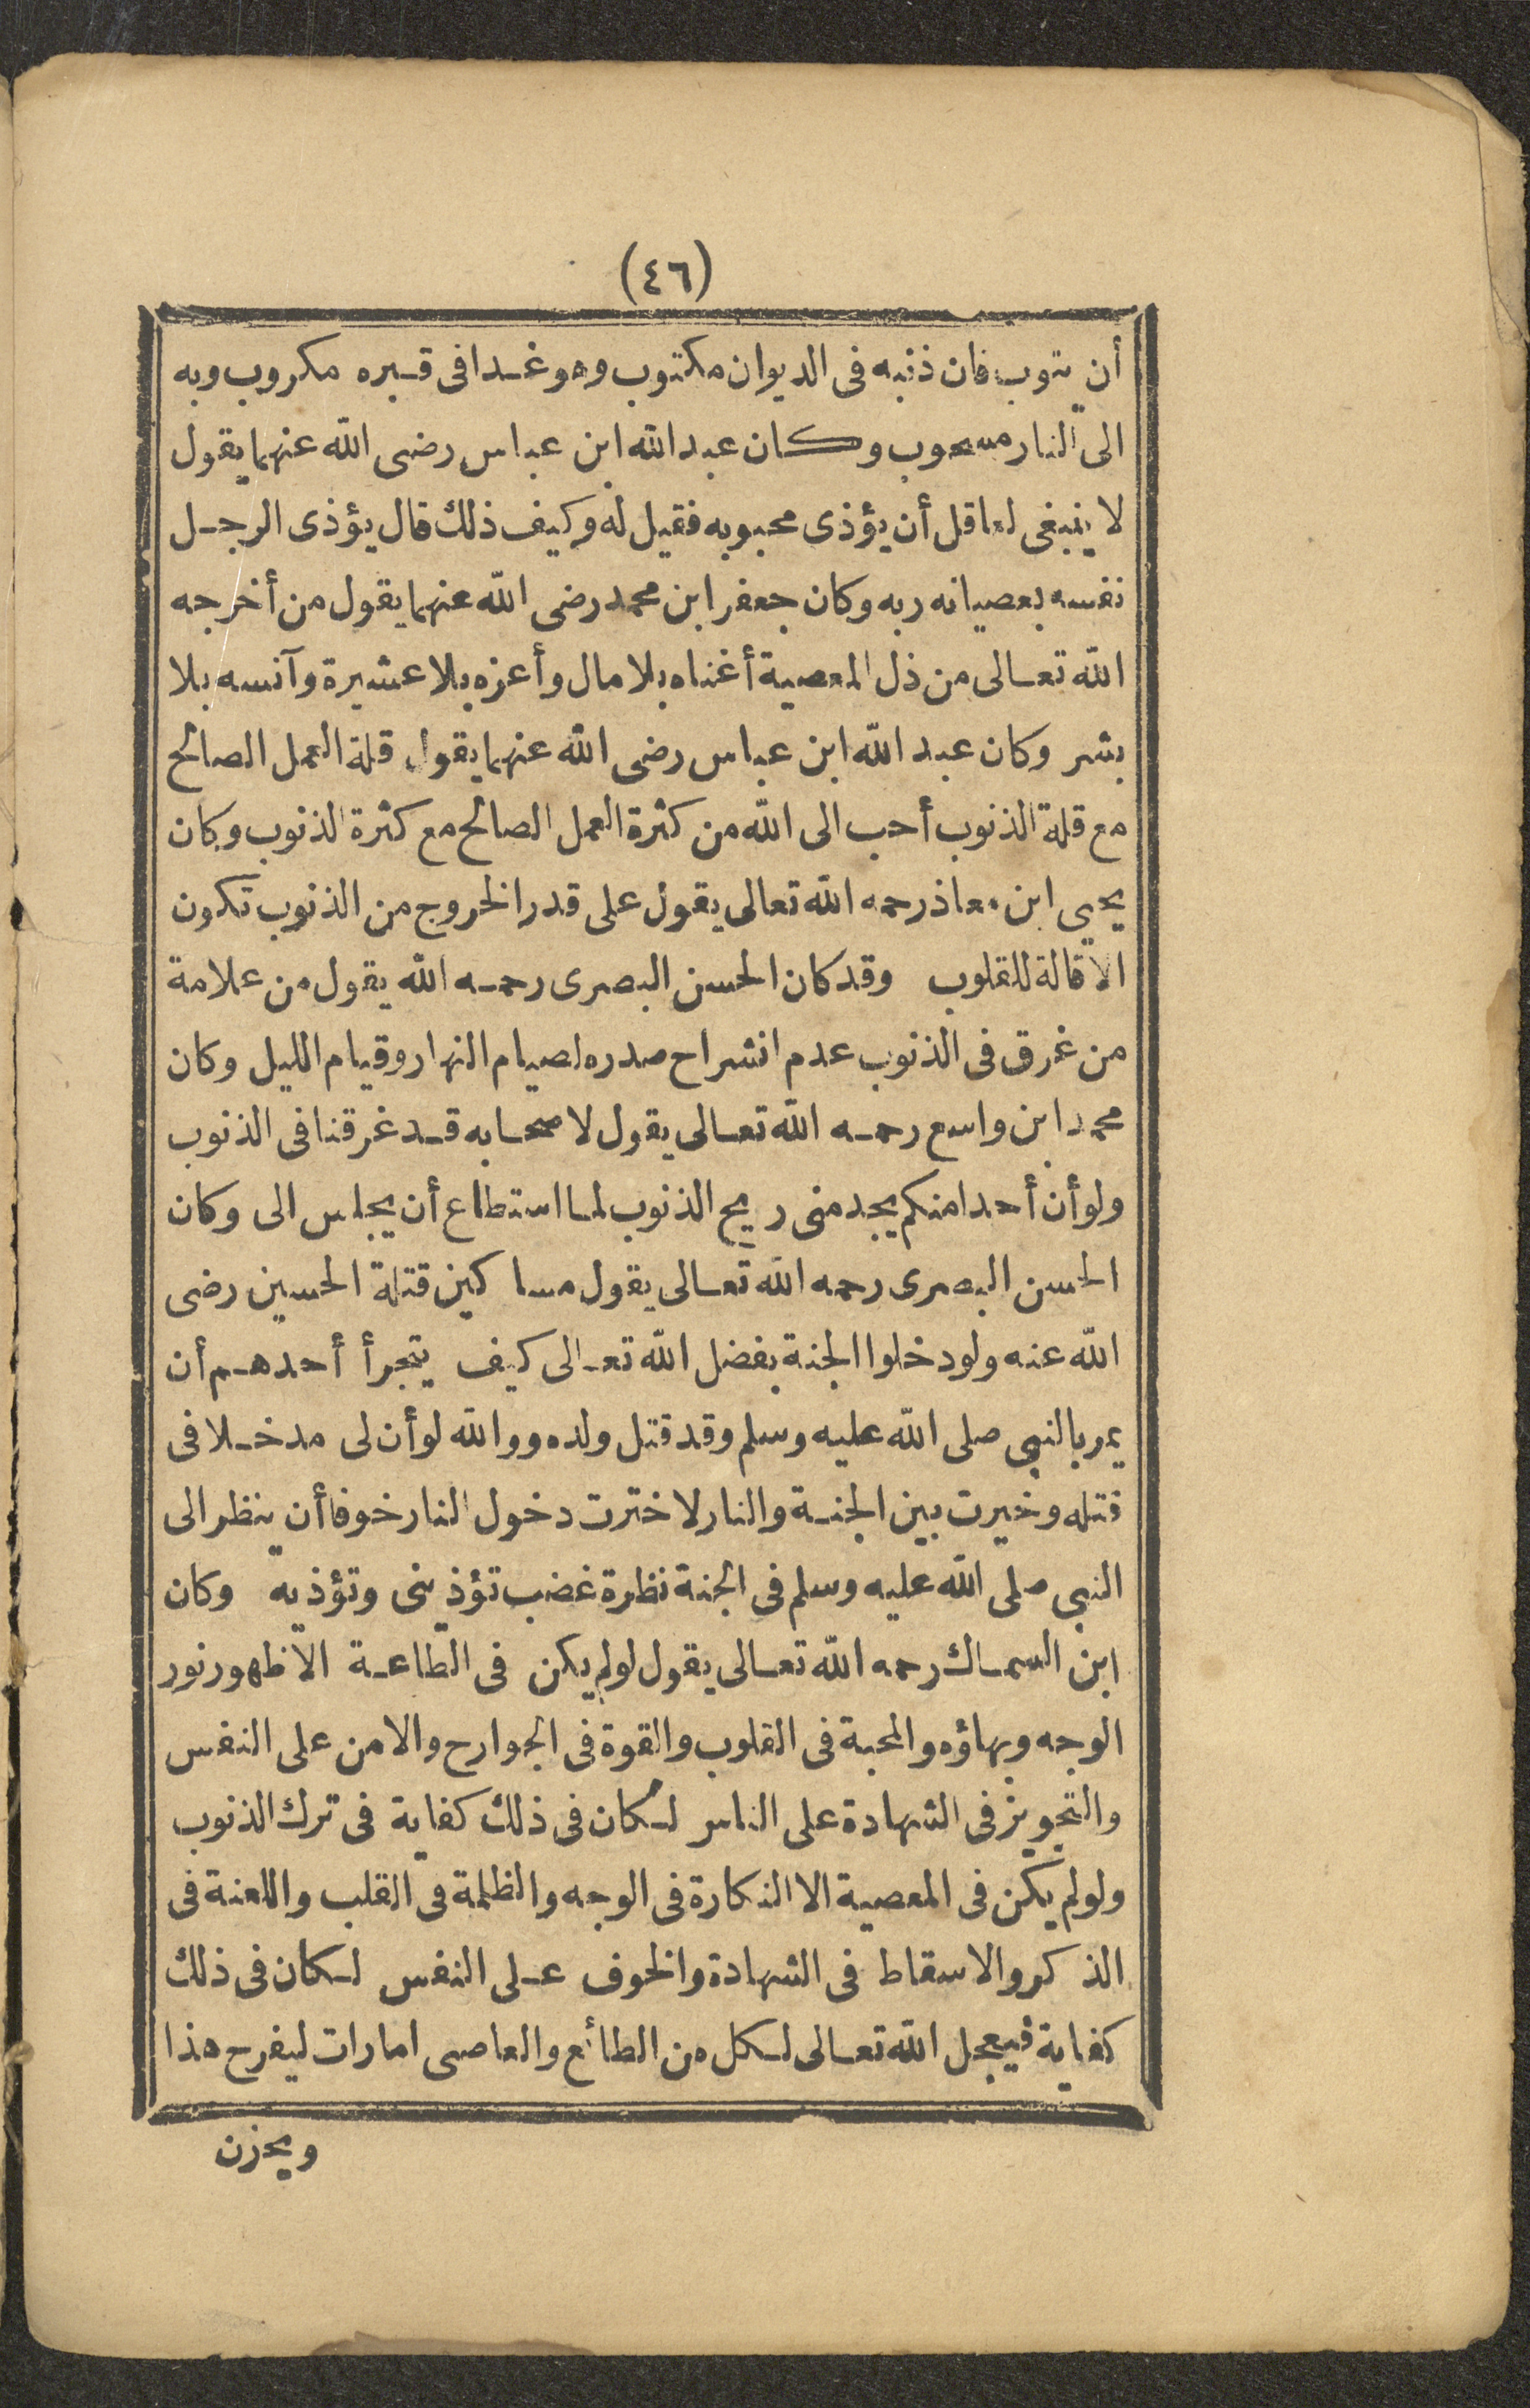 (٤٦)
أن يتوب فان ذنبه فى الديوان مكتوب وهو غدا فى قبره مكروب وبه
الى النار مسحوب وكان عبد الله ابن عباس رضى الله عنهما يقول
لا ينبغى لعاقل أن يؤذى محبوبه فقيل له وكيف ذلك قال يؤذى الرجل
نفسه بعصيانه ربه وكان جعفر ابن محمد رضى الله عنهما يقول من أخرجه
الله تعالى من ذل المعصية أغناه بلا مال وأعزه بلا عشيرة وآنسه بلا
بشر وكان عبد الله ابن عباس رضى الله عنهما يقول قلة العمل الصالح
مع قلة الذنوب أحب الى الله من كثرة العمل الصالح مع كثرة الذنوب وكان
يحيى ابن معاذ رحمه الله تعالى يقول على قدر الخروج من الذنوب تكون
الاقالة للقلوب وقد كان الحسن البصرى رحمه الله يقول من علامة
من غرق فى الذنوب عدم انشراح صدره لصيام النهار وقيام الليل وكان
محمد ابن واسع رحمه الله تعالى يقول لاصحابه قد غرقنا فى الذنوب
ولو أن أحدا منكم يجد منى ريح الذنوب لما استطاع أن يجلس الى وكان
الحسن البصرى رحمه الله تعالى يقول مساكين قتلة الحسين رضى
الله عنه ولو دخلوا الجنة بفضل الله تعالى كيف يتجرأ أحدهم أن
يمر بالنبى صلى الله عليه وسلم وقد قتل ولده ووالله لو أن لى مدخلا فى
قتله وخيرت بين الجنة والنار لاخترت دخول النار خوفا أن ينظر الى
النبى صلى الله عليه وسلم فى الجنة نظرة غضب تؤذينى وتؤذيه وكان
ابن السماك رحمه الله تعالى يقول لو لم يكن فى الطاعة الا ظهور نور
الوجه وبهاؤه والمحبة فى القلوب والقوة فى الجوارح والامن على النفس
والتجويز فى الشهادة على الناس لكان فى ذلك كفاية فى ترك الذنوب
ولو لم يكن فى المعصية الا النكارة فى الوجه والظلمة فى القلب واللعنة فى
الذكر والاسقاط فى الشهادة والخوف على النفس لكان فى ذلك
كفاية فيجعل الله تعالى لكل من الطائع والعاصى امارات ليفرح هذا
ويحزن